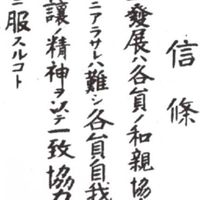 信條
發展ハ各員ノ和親協
ニアラサレハ難シ各員自我
讓ノ精神ヲ以テ一致協力
ニ服スルコト